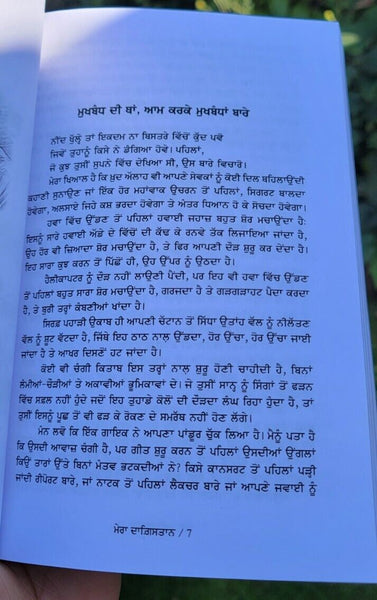 ਮੁਖਬੰਧ ਦੀ ਥਾਂ, ਆਮ ਕਰਕੇ ਮੁਖਬੰਧਾਂ ਬਾਰੇ
ਨੀਂਦ ਖੁੱਲ੍ਹੇ ਤਾਂ ਇਕਦਮ ਨਾ ਬਿਸਤਰੇ ਵਿੱਚੋਂ ਕੁੱਦ ਪਵੋ
ਜਿਵੇਂ ਤੁਹਾਨੂੰ ਕਿਸੇ ਨੇ ਡੰਗਿਆ ਹੋਵੇ। ਪਹਿਲਾਂ,
ਜੋ ਕੁਝ ਤੁਸੀਂ ਸੁਪਨੇ ਵਿੱਚ ਦੇਖਿਆ ਸੀ, ਉਸ ਬਾਰੇ ਵਿਚਾਰੋ।
ਮੇਰਾ ਖਿਆਲ ਹੈ ਕਿ ਖੁਦ ਅੱਲਾਹ ਵੀ ਆਪਣੇ ਸੇਵਕਾਂ ਨੂੰ ਕੋਈ ਦਿਲ ਬਹਿਲਾਉਂਦੀ
ਕਹਾਣੀ ਸੁਨਾਉਣ ਜਾਂ ਇੱਕ ਹੋਰ ਮਹਾਂਵਾਕ ਉਚਰਨ ਤੋਂ ਪਹਿਲਾਂ, ਸਿਗਰਟ ਬਾਲਦਾ
ਹੋਵੇਗਾ, ਅਲਸਾਏ ਜਿਹੇ ਕਸ਼ ਭਰਦਾ ਹੋਵੇਗਾ ਤੇ ਅੰਤਰ ਧਿਆਨ ਹੋ ਕੇ ਸੋਚਦਾ ਹੋਵੇਗਾ।
ਹਵਾ ਵਿੱਚ ਉੱਡਣ ਤੋਂ ਪਹਿਲਾਂ ਹਵਾਈ ਜਹਾਜ਼ ਬਹੁਤ ਸ਼ੋਰ ਮਚਾਉਂਦਾ ਹੈ:
ਇਸਨੂੰ ਸਾਰੇ ਹਵਾਈ ਅੱਡੇ ਦੇ ਵਿੱਚੋਂ ਦੀ ਕੱਢ ਕੇ ਰਨਵੇ ਤੱਕ ਲਿਜਾਇਆ ਜਾਂਦਾ ਹੈ,
ਉਹ ਹੋਰ ਵੀ ਜ਼ਿਆਦਾ ਸ਼ੋਰ ਮਚਾਉਂਦਾ ਹੈ, ਤੇ ਫਿਰ ਆਪਣੀ ਦੌੜ ਸ਼ੁਰੂ ਕਰ ਦੇਂਦਾ ਹੈ।
ਇਹ ਸਾਰਾ ਕੁਝ ਕਰਨ ਤੋਂ ਪਿੱਛੋਂ ਹੀ, ਉਹ ਉੱਪਰ ਨੂੰ ਉਠਦਾ ਹੈ।
ਹੈਲੀਕਾਪਟਰ ਨੂੰ ਦੌੜ ਨਹੀਂ ਲਾਉਣੀ ਪੈਂਦੀ, ਪਰ ਇਹ ਵੀ ਹਵਾ ਵਿੱਚ ਉੱਡਣ
ਤੋਂ ਪਹਿਲਾਂ ਬਹੁਤ ਸਾਰਾ ਸ਼ੋਰ ਮਚਾਉਂਦਾ ਹੈ, ਗਰਜਦਾ ਹੈ ਤੇ ਗੜਗੜਾਹਟ ਪੈਦਾ ਕਰਦਾ
ਹੈ, ਤੇ ਬੁਰੀ ਤਰ੍ਹਾਂ ਕੰਬਣੀਆਂ ਖਾਂਦਾ ਹੈ।
ਸਿਰਫ਼ ਪਹਾੜੀ ਉਕਾਬ ਹੀ ਆਪਣੀ ਚੱਟਾਨ ਤੋਂ ਸਿੱਧਾ ਉਤਾਂਹ ਵੱਲ ਨੂੰ ਨੀਲੱਤਣ
ਵੱਲ ਨੂੰ ਸ਼ੂਟ ਵੱਟਦਾ ਹੈ, ਜਿੱਥੇ ਇਹ ਠਾਠ ਨਾਲ ਉੱਡਦਾ, ਹੋਰ ਉੱਚਾ, ਹੋਰ ਉੱਚਾ ਹੋਈ
ਜਾਂਦਾ ਹੈ ਤੇ ਆਖਰ ਦਿਸਣੋਂ ਹਟ ਜਾਂਦਾ ਹੈ।
ਕੋਈ ਵੀ ਚੰਗੀ ਕਿਤਾਬ ਇਸ ਤਰ੍ਹਾਂ ਨਾਲ ਸ਼ੁਰੂ ਹੋਣੀ ਚਾਹੀਦੀ ਹੈ, ਬਿਨਾਂ
ਲੰਮੀਆਂ-ਚੌੜੀਆਂ ਤੇ ਅਕਾਵੀਆਂ ਭੂਮਿਕਾਵਾਂ ਦੇ। ਜੇ ਤੁਸੀਂ ਸਾਨ੍ਹ ਨੂੰ ਸਿੰਗਾਂ ਤੋਂ ਫੜਨ
ਵਿੱਚ ਸਫਲ ਨਹੀਂ ਹੁੰਦੇ ਜਦੋਂ ਇਹ ਤੁਹਾਡੇ ਕੋਲੋਂ ਦੀ ਦੌੜਦਾ ਲੰਘ ਰਿਹਾ ਹੁੰਦਾ ਹੈ, ਤਾਂ
ਤੁਸੀਂ ਇਸਨੂੰ ਪੂਛ ਤੋਂ ਵੀ ਫੜ ਕੇ ਰੋਕਣ ਦੇ ਸਮਰੱਥ ਨਹੀਂ ਹੋਣ ਲੱਗੇ।
ਮੰਨ ਲਵੋ ਕਿ ਇੱਕ ਗਾਇਕ ਨੇ ਆਪਣਾ ਪਾਂਡੂਰ ਚੁੱਕ ਲਿਆ ਹੈ। ਮੈਨੂੰ ਪਤਾ ਹੈ
ਕਿ ਉਸਦੀ ਆਵਾਜ਼ ਚੰਗੀ ਹੈ, ਪਰ ਗੀਤ ਸ਼ੁਰੂ ਕਰਨ ਤੋਂ ਪਹਿਲਾਂ ਉਸਦੀਆਂ ਉਂਗਲਾਂ
ਕਿਉਂ ਤਾਰਾਂ ਉੱਤੇ ਬਿਨਾਂ ਮੰਤਵ ਭਟਕਦੀਆਂ ਨੇ? ਕਿਸੇ ਕਾਨਸਰਟ ਤੋਂ ਪਹਿਲਾਂ ਪੜ੍ਹੀ
ਜਾਂਦੀ ਰੀਪੋਰਟ ਬਾਰੇ, ਜਾਂ ਨਾਟਕ ਤੋਂ ਪਹਿਲਾਂ ਲੈਕਚਰ ਬਾਰੇ ਜਾਂ ਆਪਣੇ ਜਵਾਈ ਨੂੰ
ਮੇਰਾ ਦਾਗ਼ਿਸਤਾਨ / 7